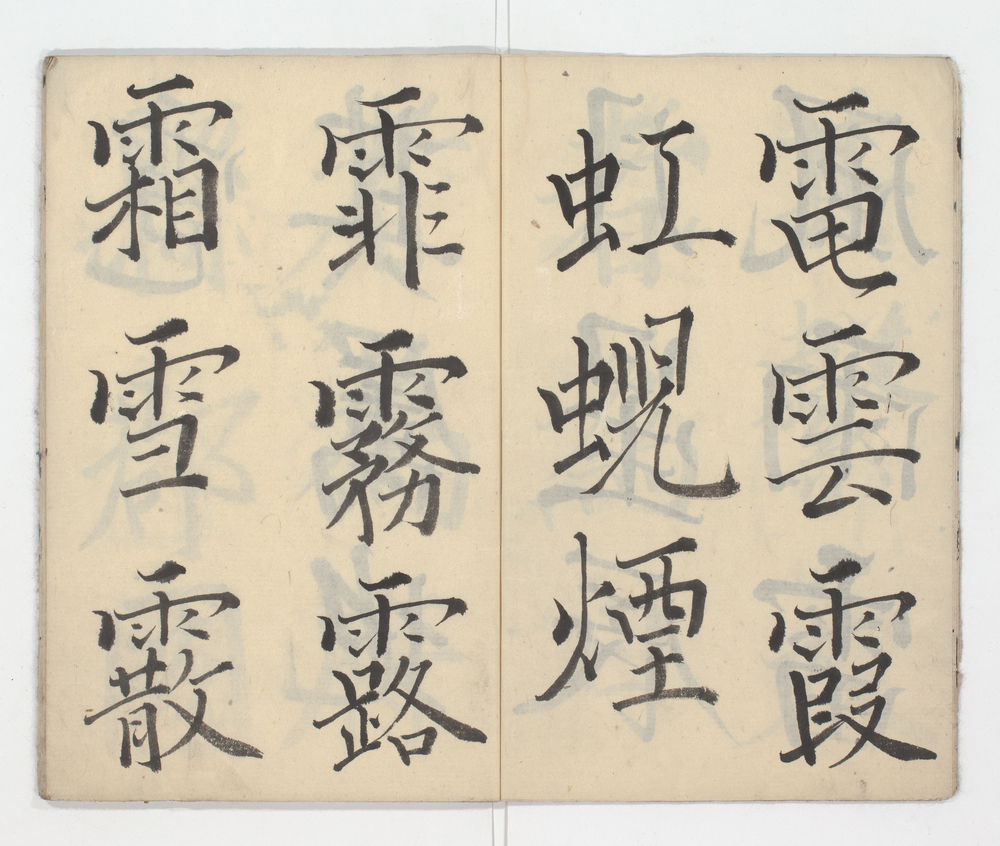 電雲霞
虹蜺煙
霏霧露
霜雪霰